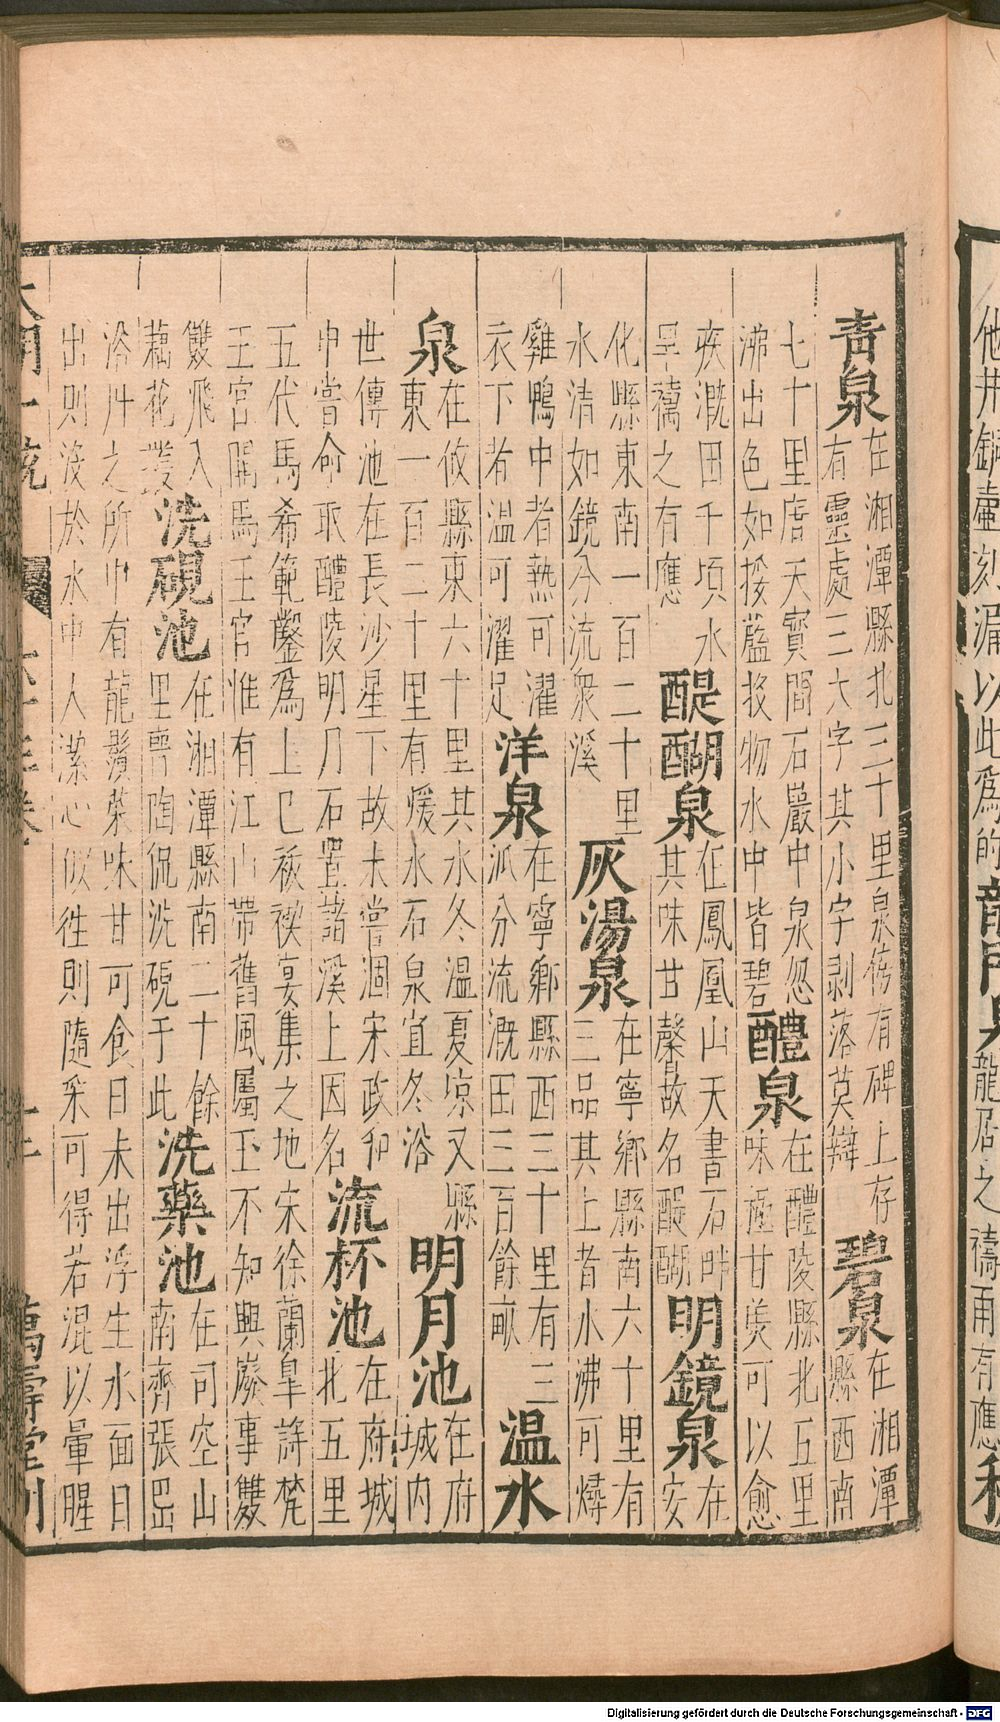 他井
壷刻漏以此爲的
龍居之禱雨有應
青泉
在湘潭縣北三十里泉傍有碑上存
有靈處三大字其小字剥落莫辯
碧泉
在湘潭
縣西南
七十里唐天寳間石巖中泉忽
沸出色如挼藍投物水中皆碧
醴泉
在醴陵縣北五里
味極甘美可以愈
疾溉田千頃水
旱禱之有應
醍醐泉
在鳳凰山天書石畔
其味甘馨故名醍醐
明鏡泉
在
安
化縣東南一百二十里
水清如鏡分流衆溪
灰湯泉
在寧鄉縣南六十里有
三品其上者水沸可燖
雞鴨中者熱可濯
衣下者温可濯足
洋泉
在寧鄉縣西三十里有三
泒分流溉田三百餘畝
温水
泉
在攸縣東六十里其水冬温夏凉又縣
東一百二十里有煖水石泉宜冬浴
明月池
在府
城内
世傳池在長沙星下故未嘗涸宋政和
中嘗命取醴陵明月石置諸溪上因名
流杯池
在府城
北五里
五代馬希範鑿爲上巳祓禊宴集之地宋徐蘭皐詩梵
王宮開馬王官惟有江山帶舊風屬玉不知興廢事雙
雙飛入
藕花叢
洗硯池
在湘潭縣南二十餘
里晉陶侃洗硯于此
洗藥池
在司空山
南齊張岊
浴丹之所中有龍鬚菜味甘可食日未出浮生水面日
出則没於水中人潔心似徃則隨采可得若混以葷腥
大明一統
萬壽堂刊
Digitalisierung gefördert durch die Deutsche Forschungsgemeinschaft - DFG